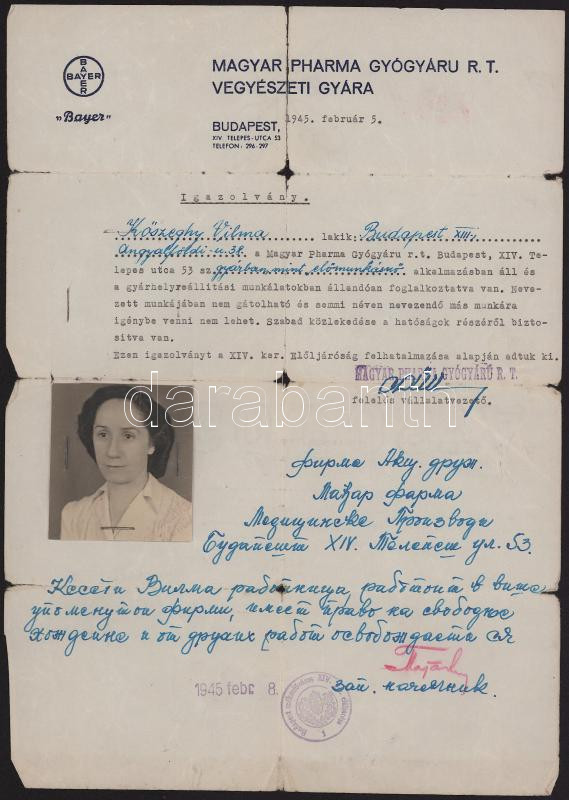 BAYER
BAYER
„Bayer"
MAGYAR PHARMA GYÓGYÁRU R. T.
VEGYÉSZETI GYÁRA
BUDAPEST, 1945. február 5.
XIV TELEPES-UTCA 53
TELEFON: 296-297
Igazolvány.
Kőszeghy Vilma lakik: Budapest XIII.,
Angyalföldi-u. 38. a Magyar Pharma Gyógyáru r.t. Budapest, XIV. Te-
lepes utca 53 sz. gyárban, mint előmunkásnő alkalmazásban áll és
a gyárhelyreállitási munkálatokban állandóan foglalkoztatva van. Neve-
zett munkájában nem gátolható és semmi néven nevezendő más munkára
igénybe venni nem lehet. Szabad közlekedése a hatóságok részéről bizto-
sitva van.
Ezen igazolványt a XIV. ker. Előljáróság felhatalmazása alapján adtuk ki.
MAGYAR PHARMA GYÓGYÁRU R. T.
felelős vállalatvezető.
darabanth
фирма Акц. друж.
Маџар фарма
Медицинске Производи
Будапешт XIV. Телепеш ул. 53.
Кесеги Вилма работница работит в више
упоменутой фирми, имеет право на свободне
хождение и от других работ освобождается
1945 febr 8.
зам. начелник.